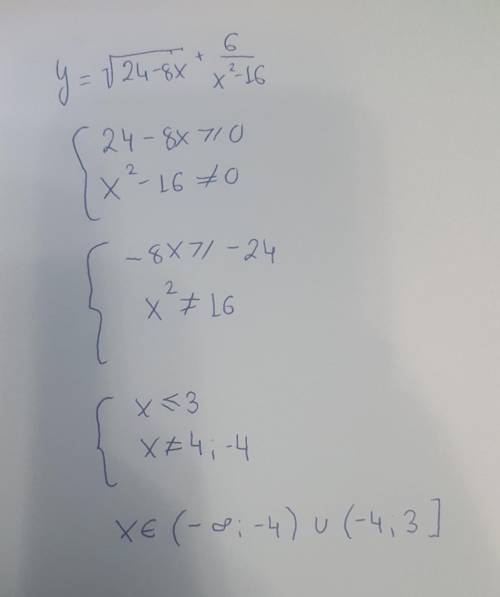 y = √24-8x + 6/x²-16
24 - 8x ⩾ 0
x² - 16 ≠ 0
-8x ⩾ -24
x² ≠ 16
x ⩽ 3
x ≠ 4; -4
x ∈ (-∞; -4) ∪ (-4; 3]